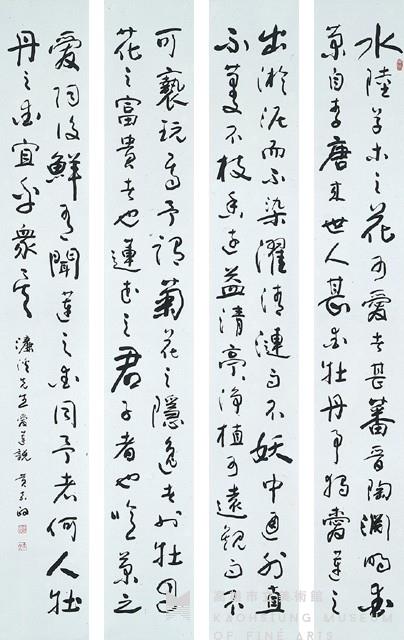 水陸草木之花可愛者甚蕃晉陶淵明愛
菊自李唐來世人甚愛牡丹予獨愛蓮之
出淤泥而不染濯清漣而不妖中通外直
不蔓不枝香遠益清亭亭淨植可遠觀而不
可褻玩焉予謂菊花之隱逸者也牡丹
花之富貴者也蓮花之君子者也噫菊之
愛陶後鮮有聞蓮之愛同予者何人牡
丹之愛宜乎衆矣
濂溪先生愛蓮說 黃
高雄市立美術館
KAOHSIUNG MUSEUM
OF FINE ARTS